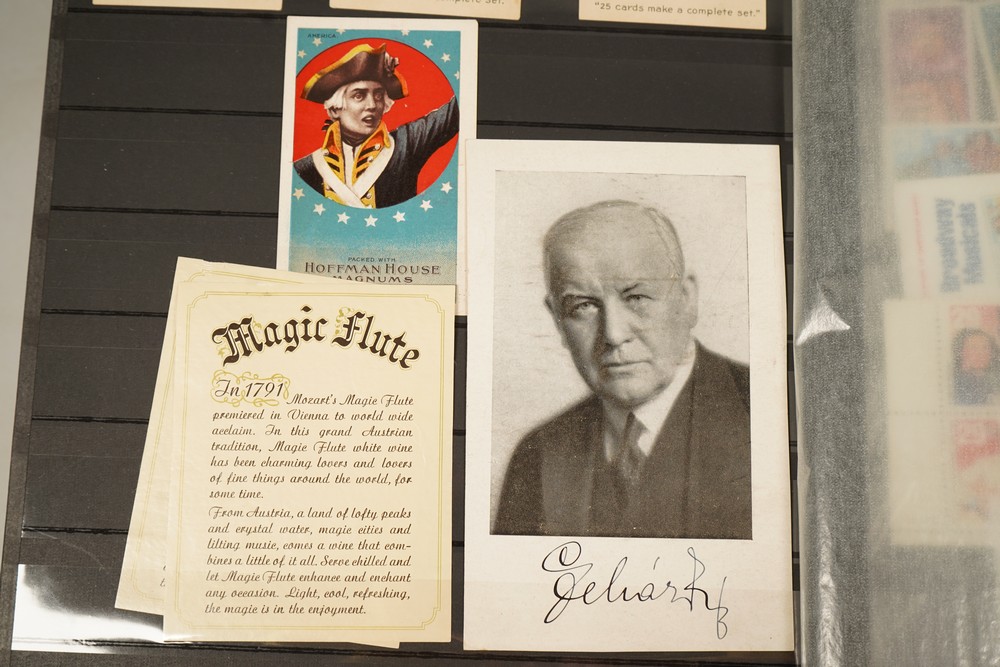 "25 cards make a complete set."
AMERICA.
PACKED WITH
HOFFMAN HOUSE
MAGNUMS
Magic Flute
In 1791 Mozart's Magic Flute
premiered in Vienna to world wide
acclaim. In this grand Austrian
tradition, Magic Flute white wine
has been charming lovers and lovers
of fine things around the world, for
some time.
From Austria, a land of lofty peaks
and crystal water, magic cities and
lilting music, comes a wine that com-
bines a little of it all. Serve chilled and
let Magic Flute enhance and enchant
any occasion. Light, cool, refreshing,
the magic is in the enjoyment.
Broadway
Musicals